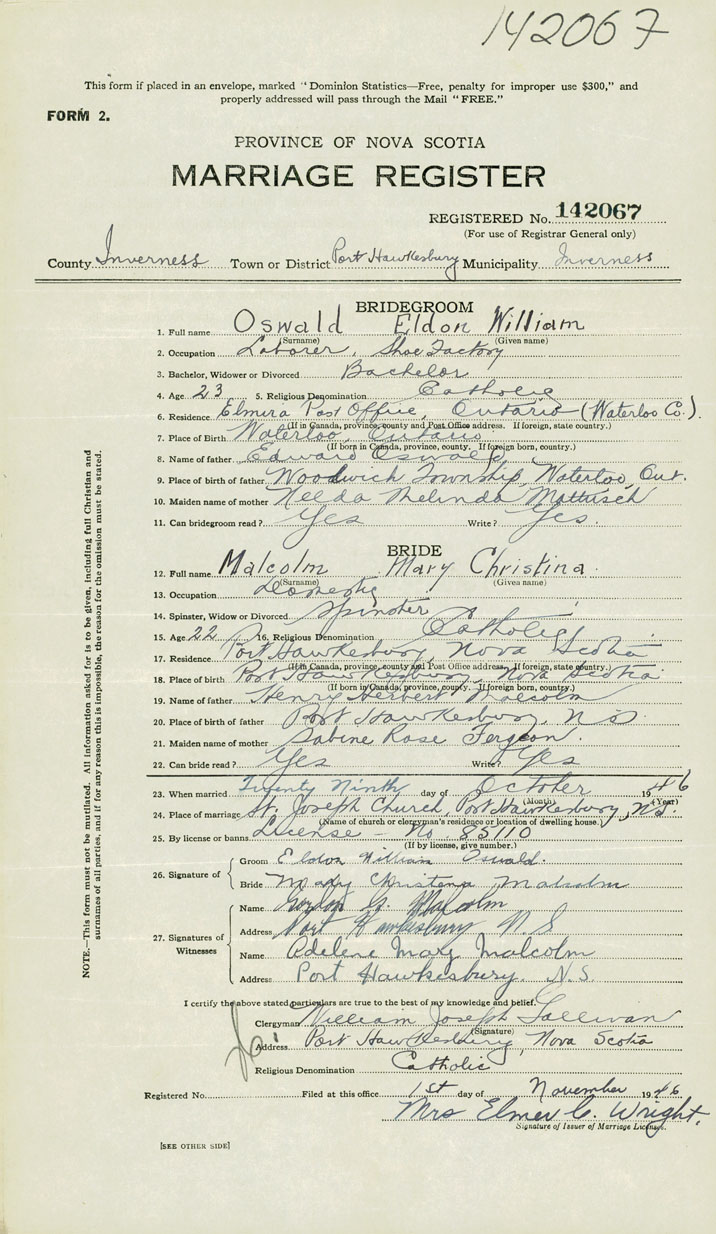 142067
This form if placed in an envelope, marked "Dominion Statistics—Free, penalty for improper use $300," and
properly addressed will pass through the Mail "FREE."
FORM 2.
PROVINCE OF NOVA SCOTIA
MARRIAGE REGISTER
REGISTERED No. 142067
(For use of Registrar General only)
County Inverness Town or District Port Hawkesbury Municipality Inverness
BRIDEGROOM
1. Full name Oswald Eldon William
(Surname) (Given name)
2. Occupation Laborer, Shoe Factory
3. Bachelor, Widower or Divorced Bachelor
4. Age 23 5. Religious Denomination Catholic
6. Residence Elmira Post Office, Ontario (Waterloo Co.).
(If in Canada, province, county and Post Office address. If foreign, state country.)
7. Place of Birth Waterloo, Ontario
(If born in Canada, province, county. If foreign born, country.)
8. Name of father Edward Oswald
9. Place of birth of father Woodwich Township, Waterloo, Ont.
10. Maiden name of mother Melinda Mattusch
11. Can bridegroom read? Yes Write? Yes.
BRIDE
12. Full name Malcolm Mary Christina
(Surname) (Given name)
13. Occupation Domestic
14. Spinster, Widow or Divorced Spinster
15. Age 22 16. Religious Denomination Catholic
17. Residence Port Hawkesbury, Nova Scotia
(If in Canada, province, county and Post Office address. If foreign, state country.)
18. Place of birth Port Hawkesbury, Nova Scotia
(If born in Canada, province, county. If foreign born, country.)
19. Name of father Henry Herbert Malcolm
20. Place of birth of father Port Hawkesbury, N S
21. Maiden name of mother Sabine Rose Fergeon.
22. Can bride read? Yes Write? Yes
23. When married Twenty Ninth day of October 1946
(Month) (Year)
24. Place of marriage St. Joseph Church, Port Hawkesbury, N.S.
(Name of church or clergyman's residence or location of dwelling house.)
25. By license or banns License - No 85110
(If by license, give number.)
26. Signature of
Groom Eldon William Oswald.
Bride Mary Christena Malcolm
27. Signatures of Witnesses
Name Gordon G. Malcolm
Address Port Hawkesbury N. S
Name Adelene Mary Malcolm
Address Port Hawkesbury. N.S.
I certify the above stated particulars are true to the best of my knowledge and belief.
Clergyman William Joseph Sullivan
(Signature)
Address Port Hawkesbury, Nova Scotia
Religious Denomination Catholic
Registered No. Filed at this office 1st day of November 1946
Mrs Elmer C. Wright.
Signature of Issuer of Marriage Licenses.
[SEE OTHER SIDE]
NOTE.—This form must not be mutilated. All information asked for is to be given, including full Christian and
surnames of all parties, and if for any reason this is impossible, the reason for the omission must be stated.